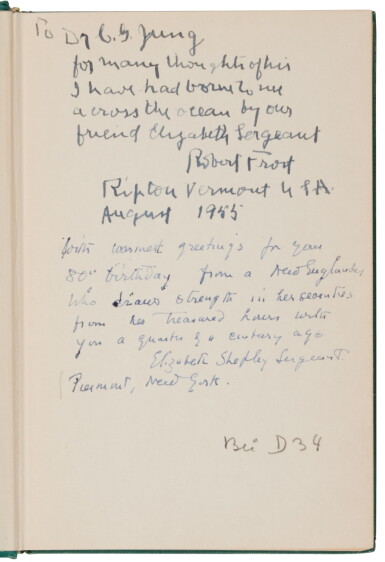 To Dr C. G. Jung
for many thoughts of his
I have had borne to me
across the ocean by our
friend Elizabeth Sergeant
Robert Frost
Ripton Vermont U S A
August 1955
With warmest greetings for your
80th birthday from a New Englander
who draws strength in her seventies
from her treasured hours with
you a quarter of a century ago
Elizabeth Shepley Sergeant
Piermont, New York.
D 34